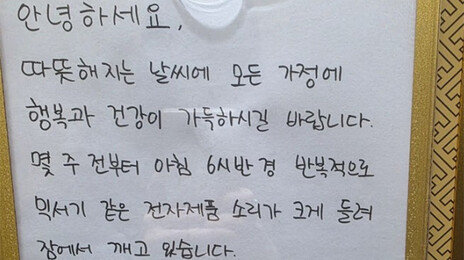 안녕하세요,
따뜻해지는 날씨에 모든 가정에
행복과 건강이 가득하시길 바랍니다.
몇 주 전부터 아침 6시반 경 반복적으로
믹서기 같은 전자제품 소리가 크게 들려
잠에서 깨고 있습니다.